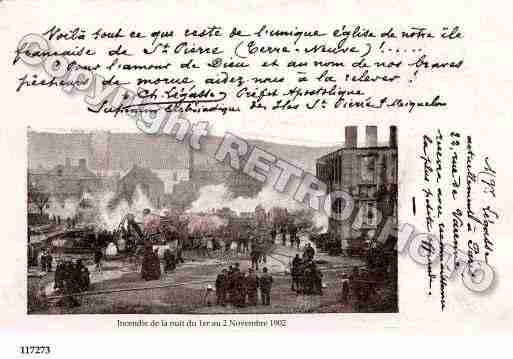 Voilà tout ce que reste de l'unique église de notre île
française de St Pierre (Terre-Neuve) ! .....
Pour l'amour de Dieu et au nom de nos braves
pêcheurs de morue aidez nous à la relever !
Ch. Légasse Préfet Apostolique
Supérieur Ecclésiastique des Iles St Pierre & Miquelon
Mgr Légasse
actuellement à Paris
22, rue de Varenne
la plus petite
© Copyright RETROphotos
Incendie de la nuit du 1er au 2 Novembre 1902
117273